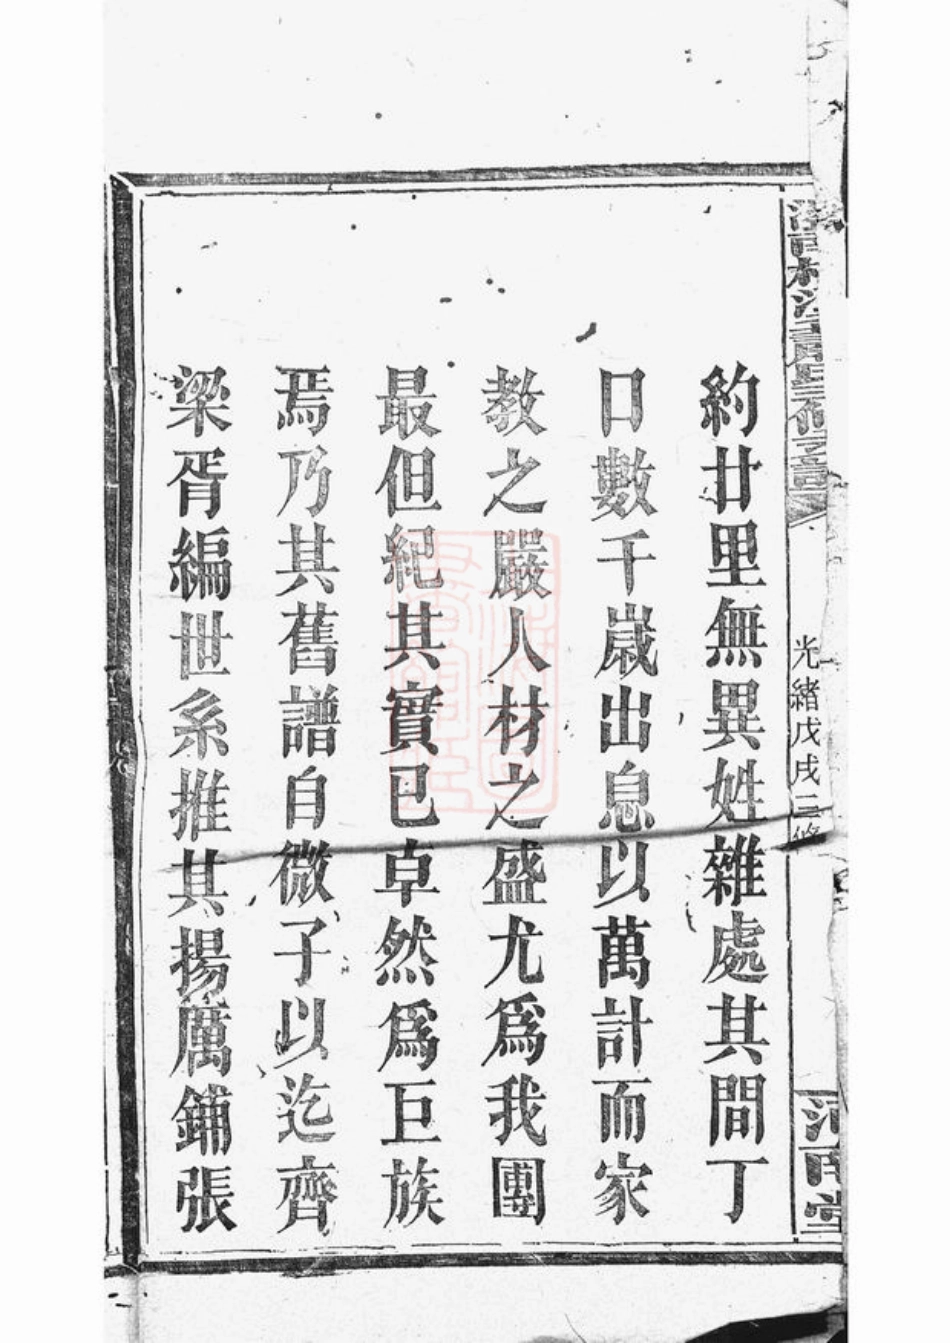 約廿里無異姓雜處其間丁
口數千歲出息以萬計而家
教之嚴人材之盛尤爲我團
最但紀其實已卓然爲巨族
焉乃其舊譜自微子以迄齊
梁胥編世系推其揚厲鋪張
光緒戊戌三修
河南堂